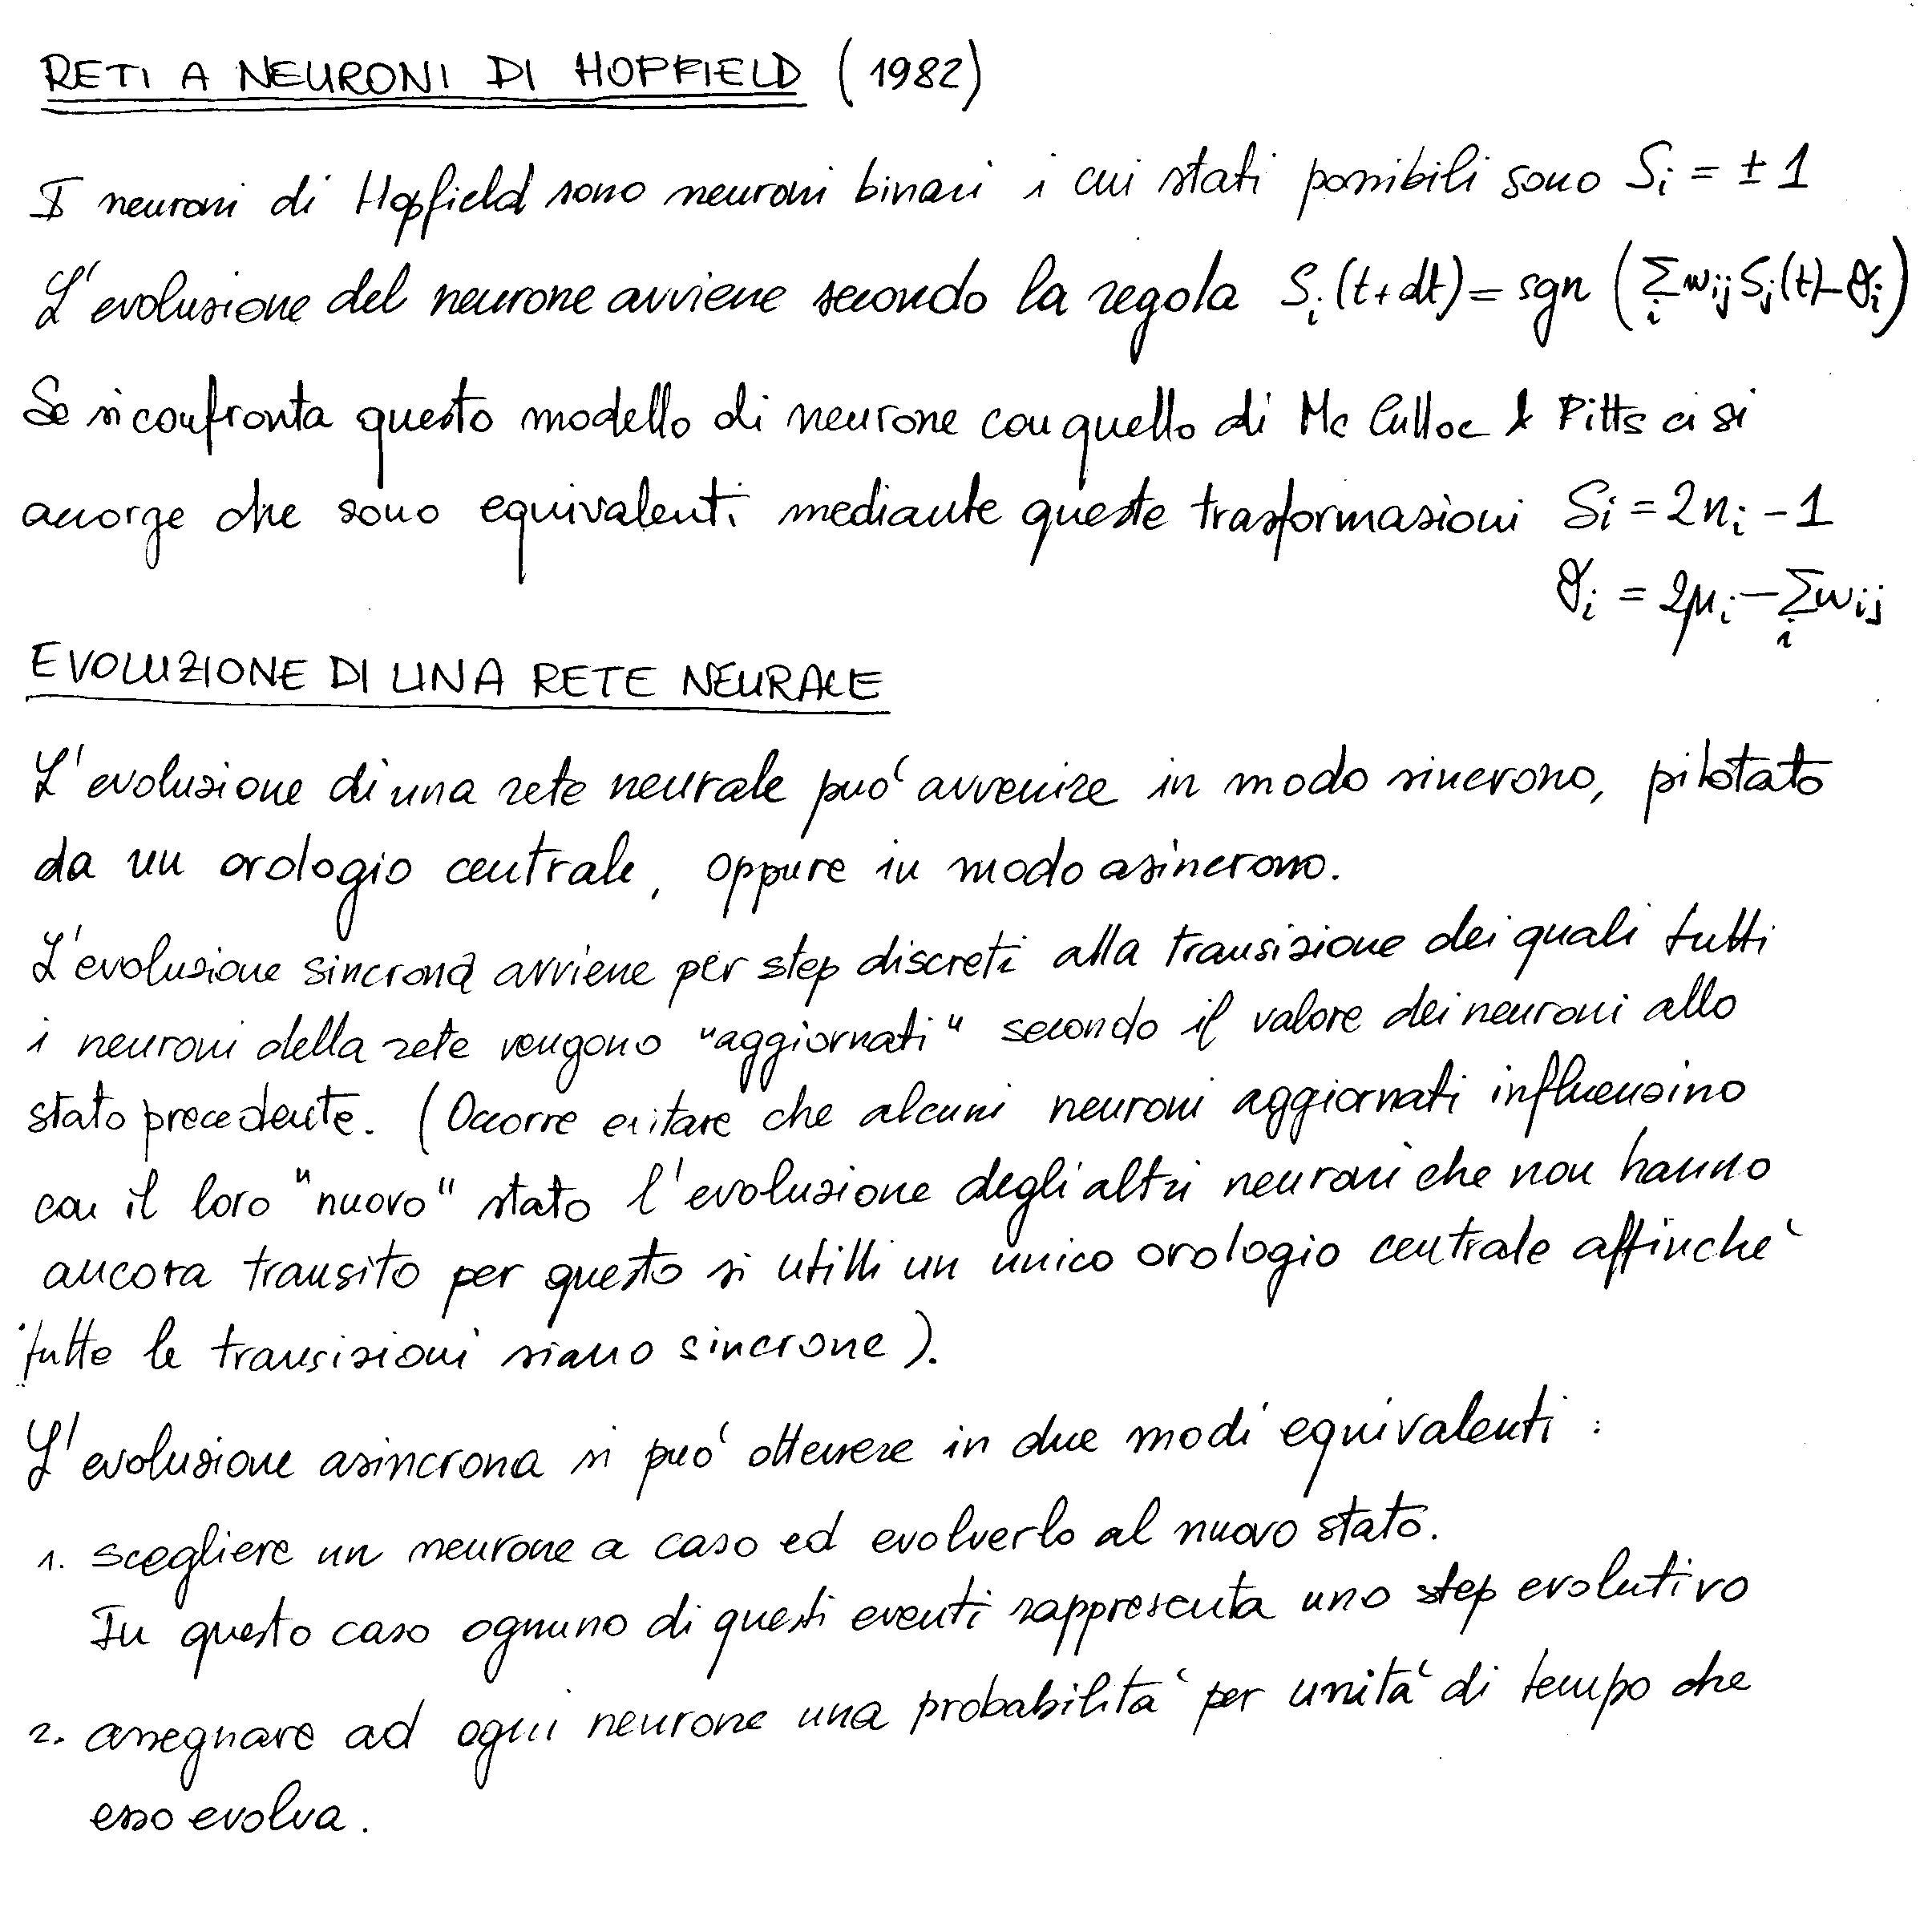 RETI A NEURONI DI HOPFIELD (1982)
I neuroni di Hopfield sono neuroni binari i cui stati possibili sono Si = ± 1
L'evoluzione del neurone avviene secondo la regola Si(t+dt) = sgn (Σi wij Sj(t) - ϑi)
Se si confronta questo modello di neurone con quello di Mc Culloc & Pitts ci si
accorge che sono equivalenti mediante queste trasformazioni Si = 2ni - 1
ϑi = 2μi - Σi wij
EVOLUZIONE DI UNA RETE NEURALE
L'evoluzione di una rete neurale puó avvenire in modo sincrono, pilotato
da un orologio centrale, oppure in modo asincrono.
L'evoluzione sincrona avviene per step discreti alla transizione dei quali tutti
i neuroni della rete vengono "aggiornati" secondo il valore dei neuroni allo
stato precedente. (Occorre evitare che alcuni neuroni aggiornati influenzino
con il loro "nuovo" stato l'evoluzione degli altri neuroni che non hanno
ancora transito per questo si utilli un unico orologio centrale affinchè
tutte le transizioni siano sincrone).
L'evoluzione asincrona si puó ottenere in due modi equivalenti :
1. scegliere un neurone a caso ed evolverlo al nuovo stato.
In questo caso ognuno di questi eventi rappresenta uno step evolutivo
2. assegnare ad ogni neurone una probabilità per unità di tempo che
esso evolva.